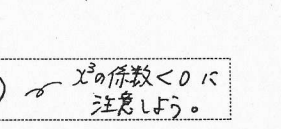 x³の係数<0に
注意しよう。